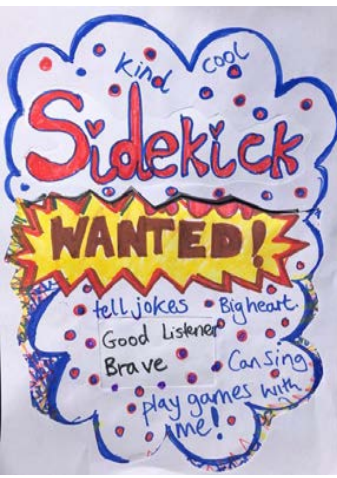 kind cool
Sidekick
WANTED!
tell jokes Big heart.
Good Listener
Brave
Can sing
play games with
me!